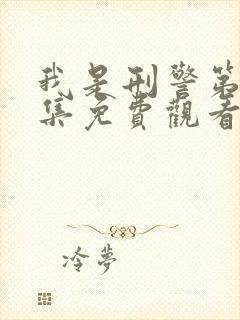 我是刑警第
集免費觀看
冷夢